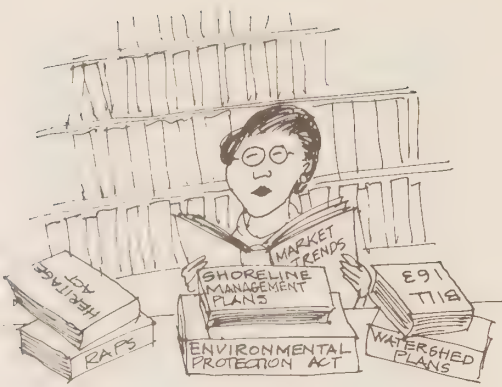 MARKET
TRENDS
HERITAGE
ACT
RAPS
SHORELINE
MANAGEMENT
PLANS
ENVIRONMENTAL
PROTECTION ACT
BILL
163
WATERSHED
PLANS